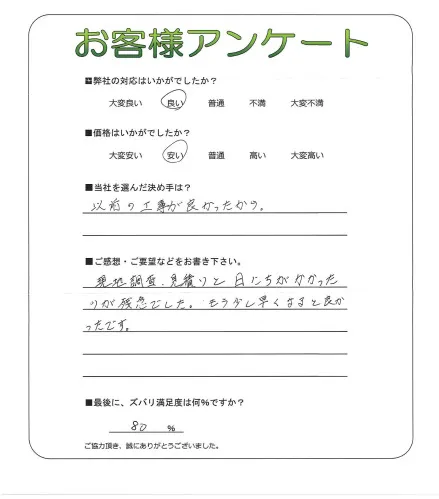 お客様アンケート
■弊社の対応はいかがでしたか？
大変良い 良い 普通 不満 大変不満
■価格はいかがでしたか？
大変安い 安い 普通 高い 大変高い
■当社を選んだ決め手は？
以前の工事が良かったから。
■ご感想・ご要望などをお書き下さい。
現地調査、見積りと日にちがかかった
のが残念でした。もう少し早くなると良か
ったです。
■最後に、ズバリ満足度は何％ですか？
80 ％
ご協力頂き、誠にありがとうございました。